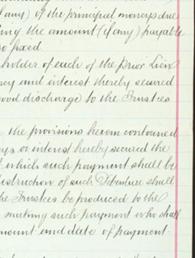 if any) of the principal moneys due
ing the amount (if any) payable
so fixed
holder of each of the Prior Lien
ncy and interest thereby secured
good discharge to the Trustees
the provisions herein contained
ys or interest hereby secured the
which such payment shall be
struction of such Debenture shall
the Trustees be produced to the
making such payment who shall
mount and date of payment